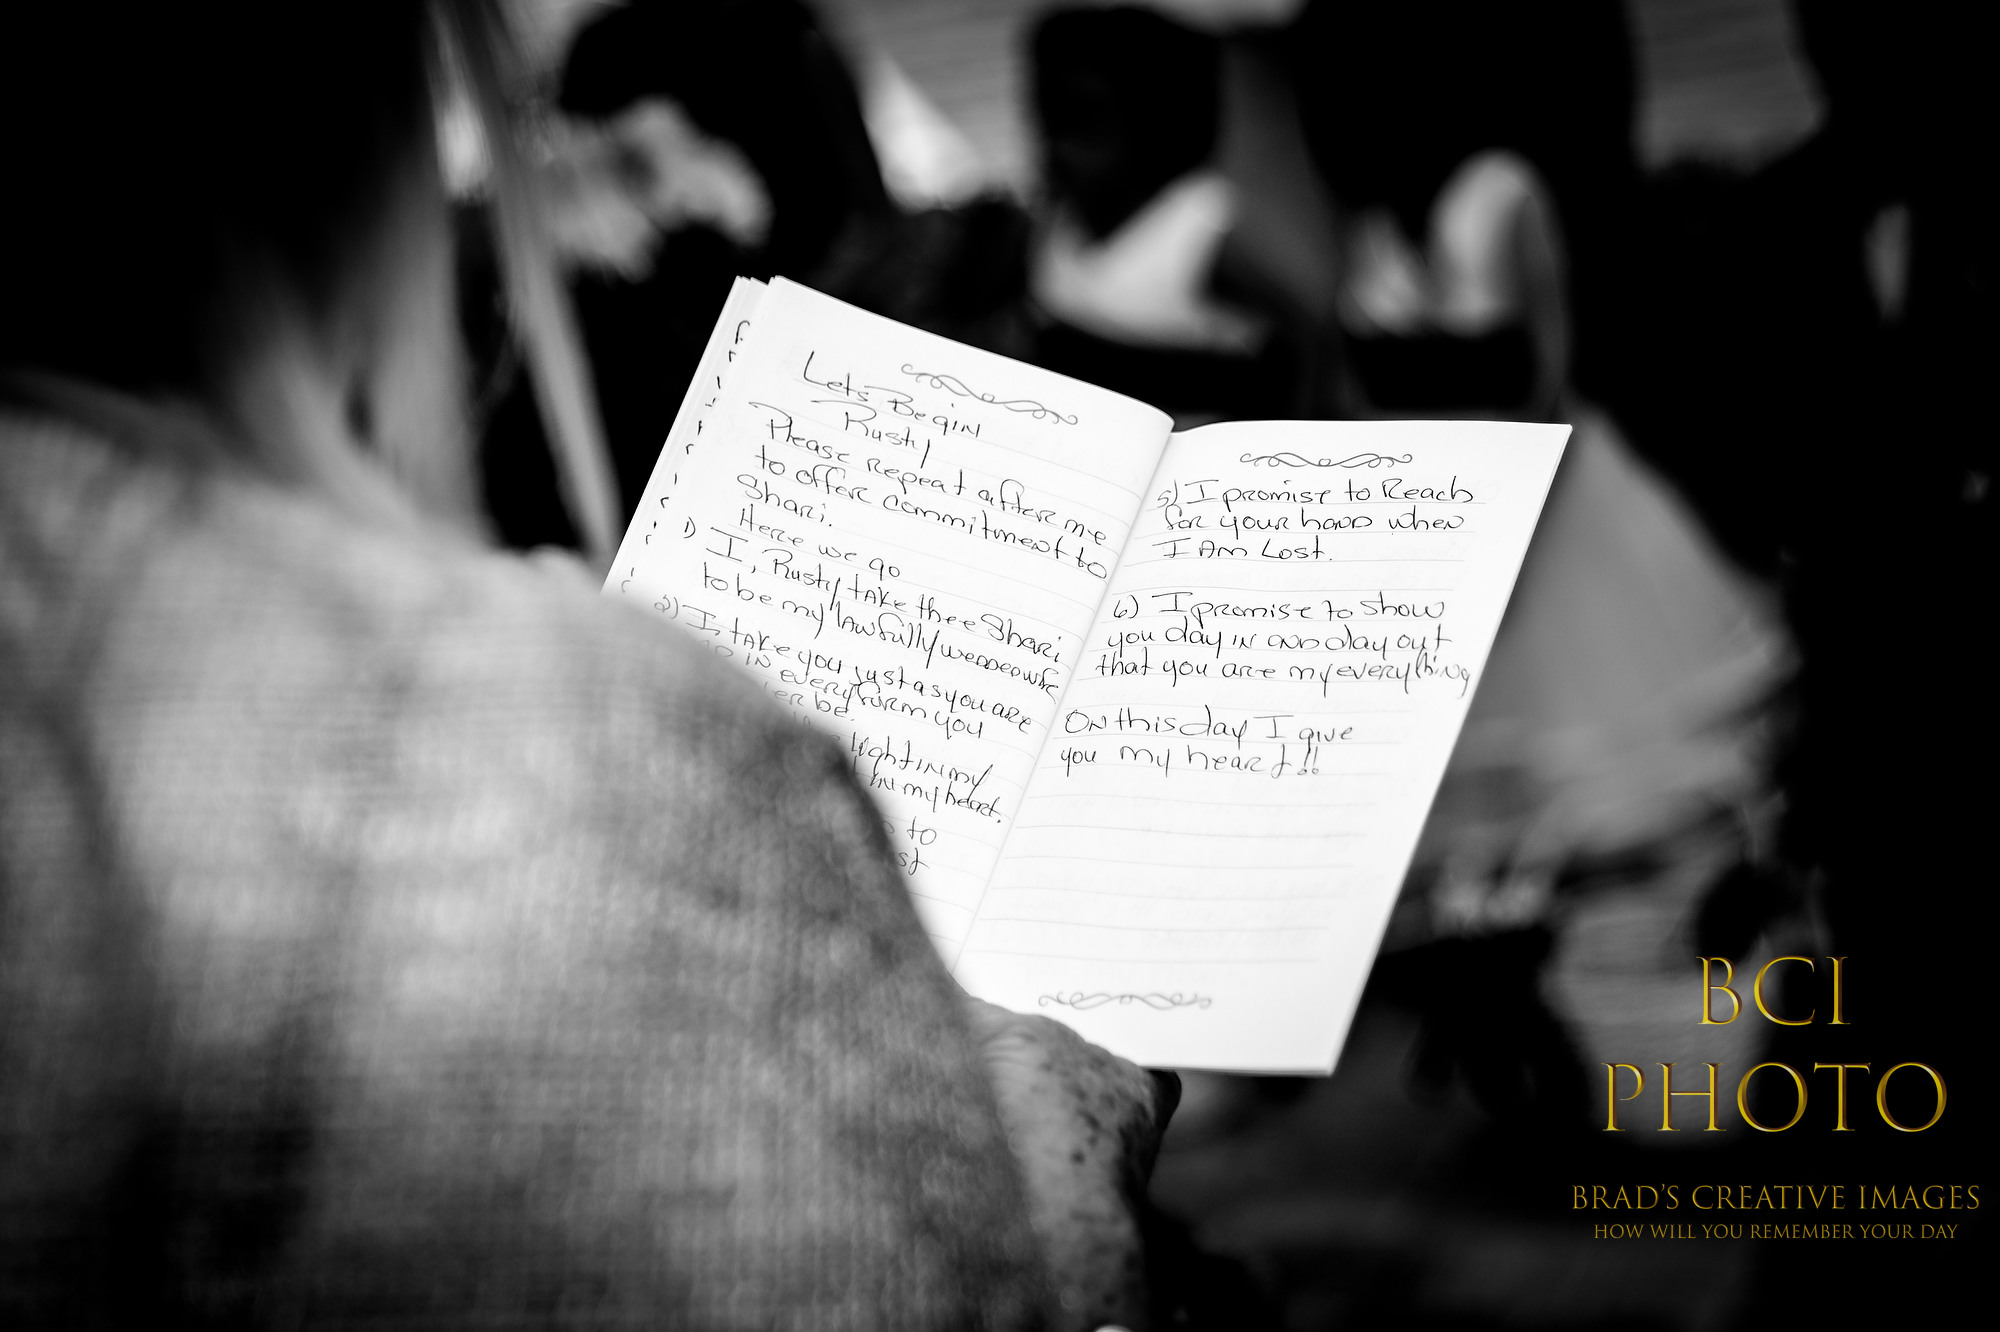 Lets Begin
Rusty
Please repeat after me
to offer commitment to
Shari.
Here we go
1) I, Rusty take thee Shari
to be my lawfully wedded wife
2) I take you just as you are
in every form you
be.
light in my
in my heart.
to
5) I promise to Reach
for your hand when
I Am Lost.
6) I promise to show
you day in and day out
that you are my everything
On this day I give
you my heart!!
BCI
PHOTO
BRAD'S CREATIVE IMAGES
HOW WILL YOU REMEMBER YOUR DAY